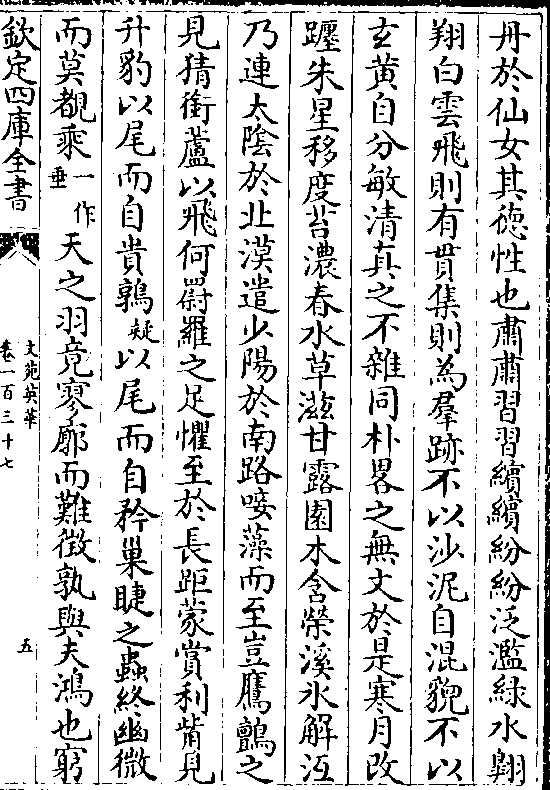 丹於仙女其德性也肅肅習習繽繽紛紛泛濫綠水翺
翔白雲飛則有貫集則為羣跡不以沙泥自混貌不以
玄黃自分敏清真之不雜同朴畧之無文於是寒月改
躔朱星移度苔濃春水草滋甘露園木含榮溪氷解沍
乃連太陰於北漠遣少陽於南路唼藻而至豈鷹鸇之
見猜銜蘆以飛何罻羅之足懼至於長距蒙賞利觜見
升豹以尾而自貴鶉疑以尾而自矜巢睫之蟲終幽微
而莫覩乗一作垂天之羽竟寥廓而難徵孰與夫鴻也窮
欽定四庫全書
文苑英華
卷一百三十七
五